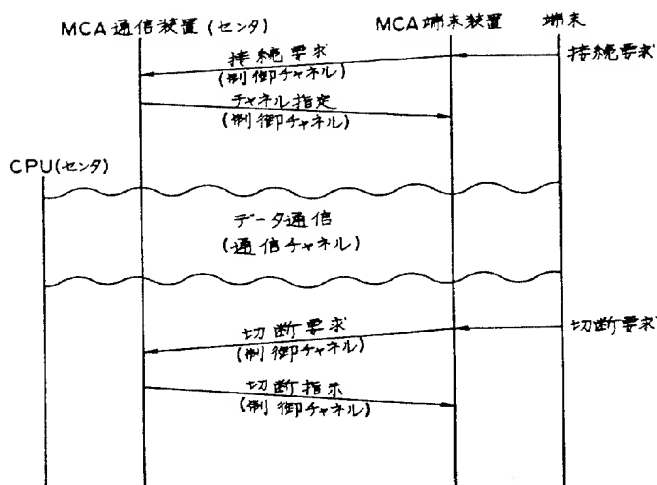 MCA通信装置(センタ)
MCA端末装置
端末
接続要求
接続要求
(制御チャネル)
チャネル指定
(制御チャネル)
CPU(センタ)
データ通信
(通信チャネル)
切断要求
切断要求
(制御チャネル)
切断指示
(制御チャネル)